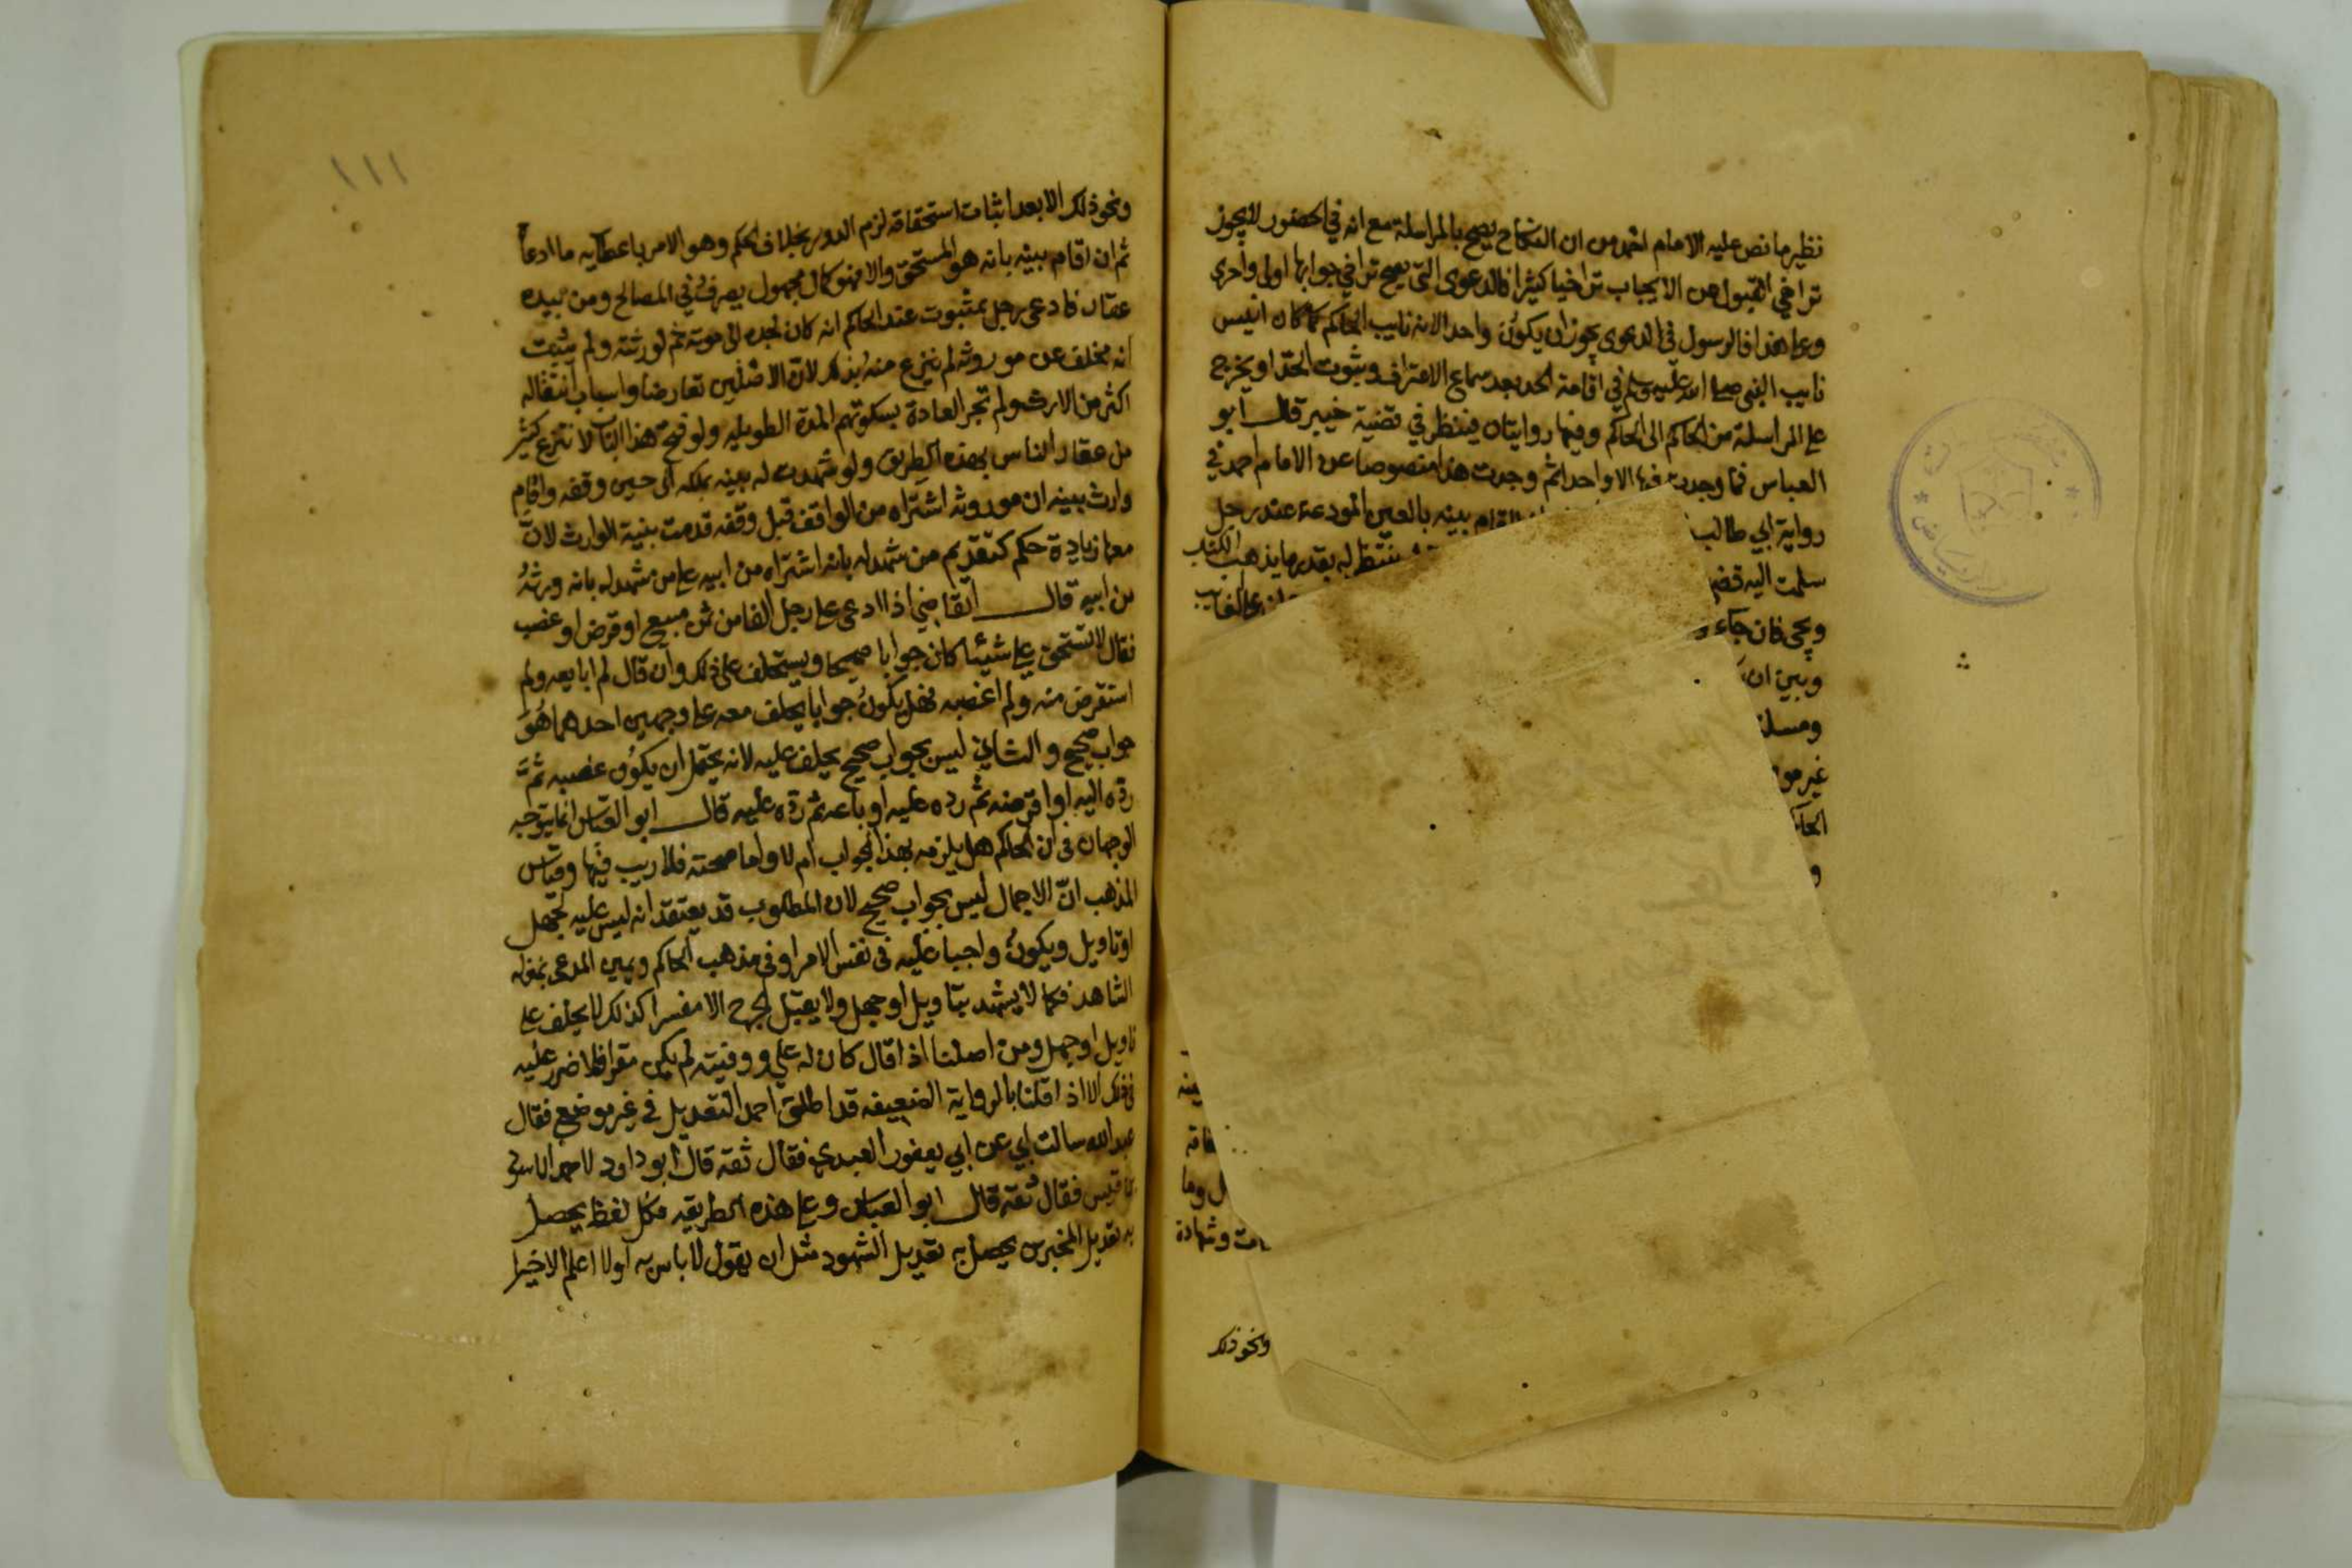 نظير ما نص عليه الامام احمد من ان النكاح يصح بالمراسلة مع انه في الحضور لا يجوز
تراخي القبول عن الايجاب تراخيا كثيرا فالدعوى التي يصح تراخي جوابها اولى واحرى
وعلى هذا فالرسول في الدعوى يجوز ان يكون واحدا لانه نايب الحاكم كما كان انيس
نايب النبي صلى الله عليه وسلم في اقامة الحد بعد سماع الاعتراف وثبوت الحد او يخرج
على المراسلة من الحاكم الى الحاكم وفيها روايتان فينظر في قضية خيبر قال ابو
العباس فما وجدت فيها الا واحدا ثم وجدت هذا منصوصا عن الامام احمد في
رواية ابي طالب اقام بينه بالعين المودعة عند رجل
سلمت اليه قضى ينتظر له بقدر ما يذهب الكتاب
ويجي فان جاء على الغايب
وبين ان
ومسلة
غير مو
الحاكم
و
ينه
وما
ت وشهادة
ونحو ذلك
١١١
ونحو ذلك الا بعد اثبات استحقاقه لزم الدور بخلاف الحكم وهو الامر باعطايه ما ادعا
ثم ان اقام بينه بانه هو المستحق والا فهو كمال مجهول يصرف في المصالح ومن بيده
عقار فادعى رجل بمثبوت عند الحاكم انه كان لجده الى موته ثم لورثته ولم يثبت
انه مخلف عن موروثه لم ينزع منه بذلك لان الاصلين تعارضا واسباب انتقاله
اكثر من الارث ولم تجر العادة بسكوتهم المدة الطويله ولو فتح هذا الباب لانتزع كثير
من عقار الناس بهذه الطريق ولو شهدت له بينه بملكه الى حين وقفه واقام
وارث بينه ان موروثه اشتراه من الواقف قبل وقفه قدمت بينة الوارث لان
معها زيادة حكم كتقديم من شهد له بانه اشتراه من ابيه على من شهد له بانه ورثه
من ابيه قال القاضي اذا ادعى على رجل الفا من ثمن مبيع او قرض او غصب
فقال لا تستحق علي شيئا كان جوابا صحيحا ويستحلف على ذلك وان قال لم ابايعه ولم
استقرض منه ولم اغصبه فهل يكون جوابا يحلف معه على وجهين احدهما هو
جواب صحيح والثاني ليس بجواب صحيح يحلف عليه لانه يحتمل ان يكون غصبه ثم
رده اليه او اقرضه ثم رده عليه او باعه ثم رده عليه قال ابو العباس انما يتوجه
الوجهان في ان الحاكم هل يلزمه بهذا الجواب ام لا واما صحته فلا ريب فيها وقياس
المذهب ان الاجمال ليس بجواب صحيح لان المطلوب قد يعتقد انه ليس عليه لجهل
او تاويل ويكون واجبا عليه في نفس الامر او في مذهب الحاكم ويمين المدعى بمنزله
الشاهد فكما لا يشهد بتاويل او جهل ولا يقبل الجرح الا مفسرا كذلك لا يحلف على
تاويل او جهل ومن اصلنا اذا قال كان له علي ووفيته لم يكن مقرا فلا ضرر عليه
في ذلك الا اذا قلنا بالرواية الضعيفه قد اطلق احمد التعديل في غير موضع فقال
عبد الله سالت ابي عن ابي يعفور العبدي فقال ثقة قال ابو داود لاحمد الاسود
بن قيس فقال ثقه قال ابو العباس وعلى هذه الطريقه فكل لفظ يحصل
به تعديل المخبرين يحصل به تعديل الشهود مثل ان يقول لا باس به او لا اعلم الا خيرا